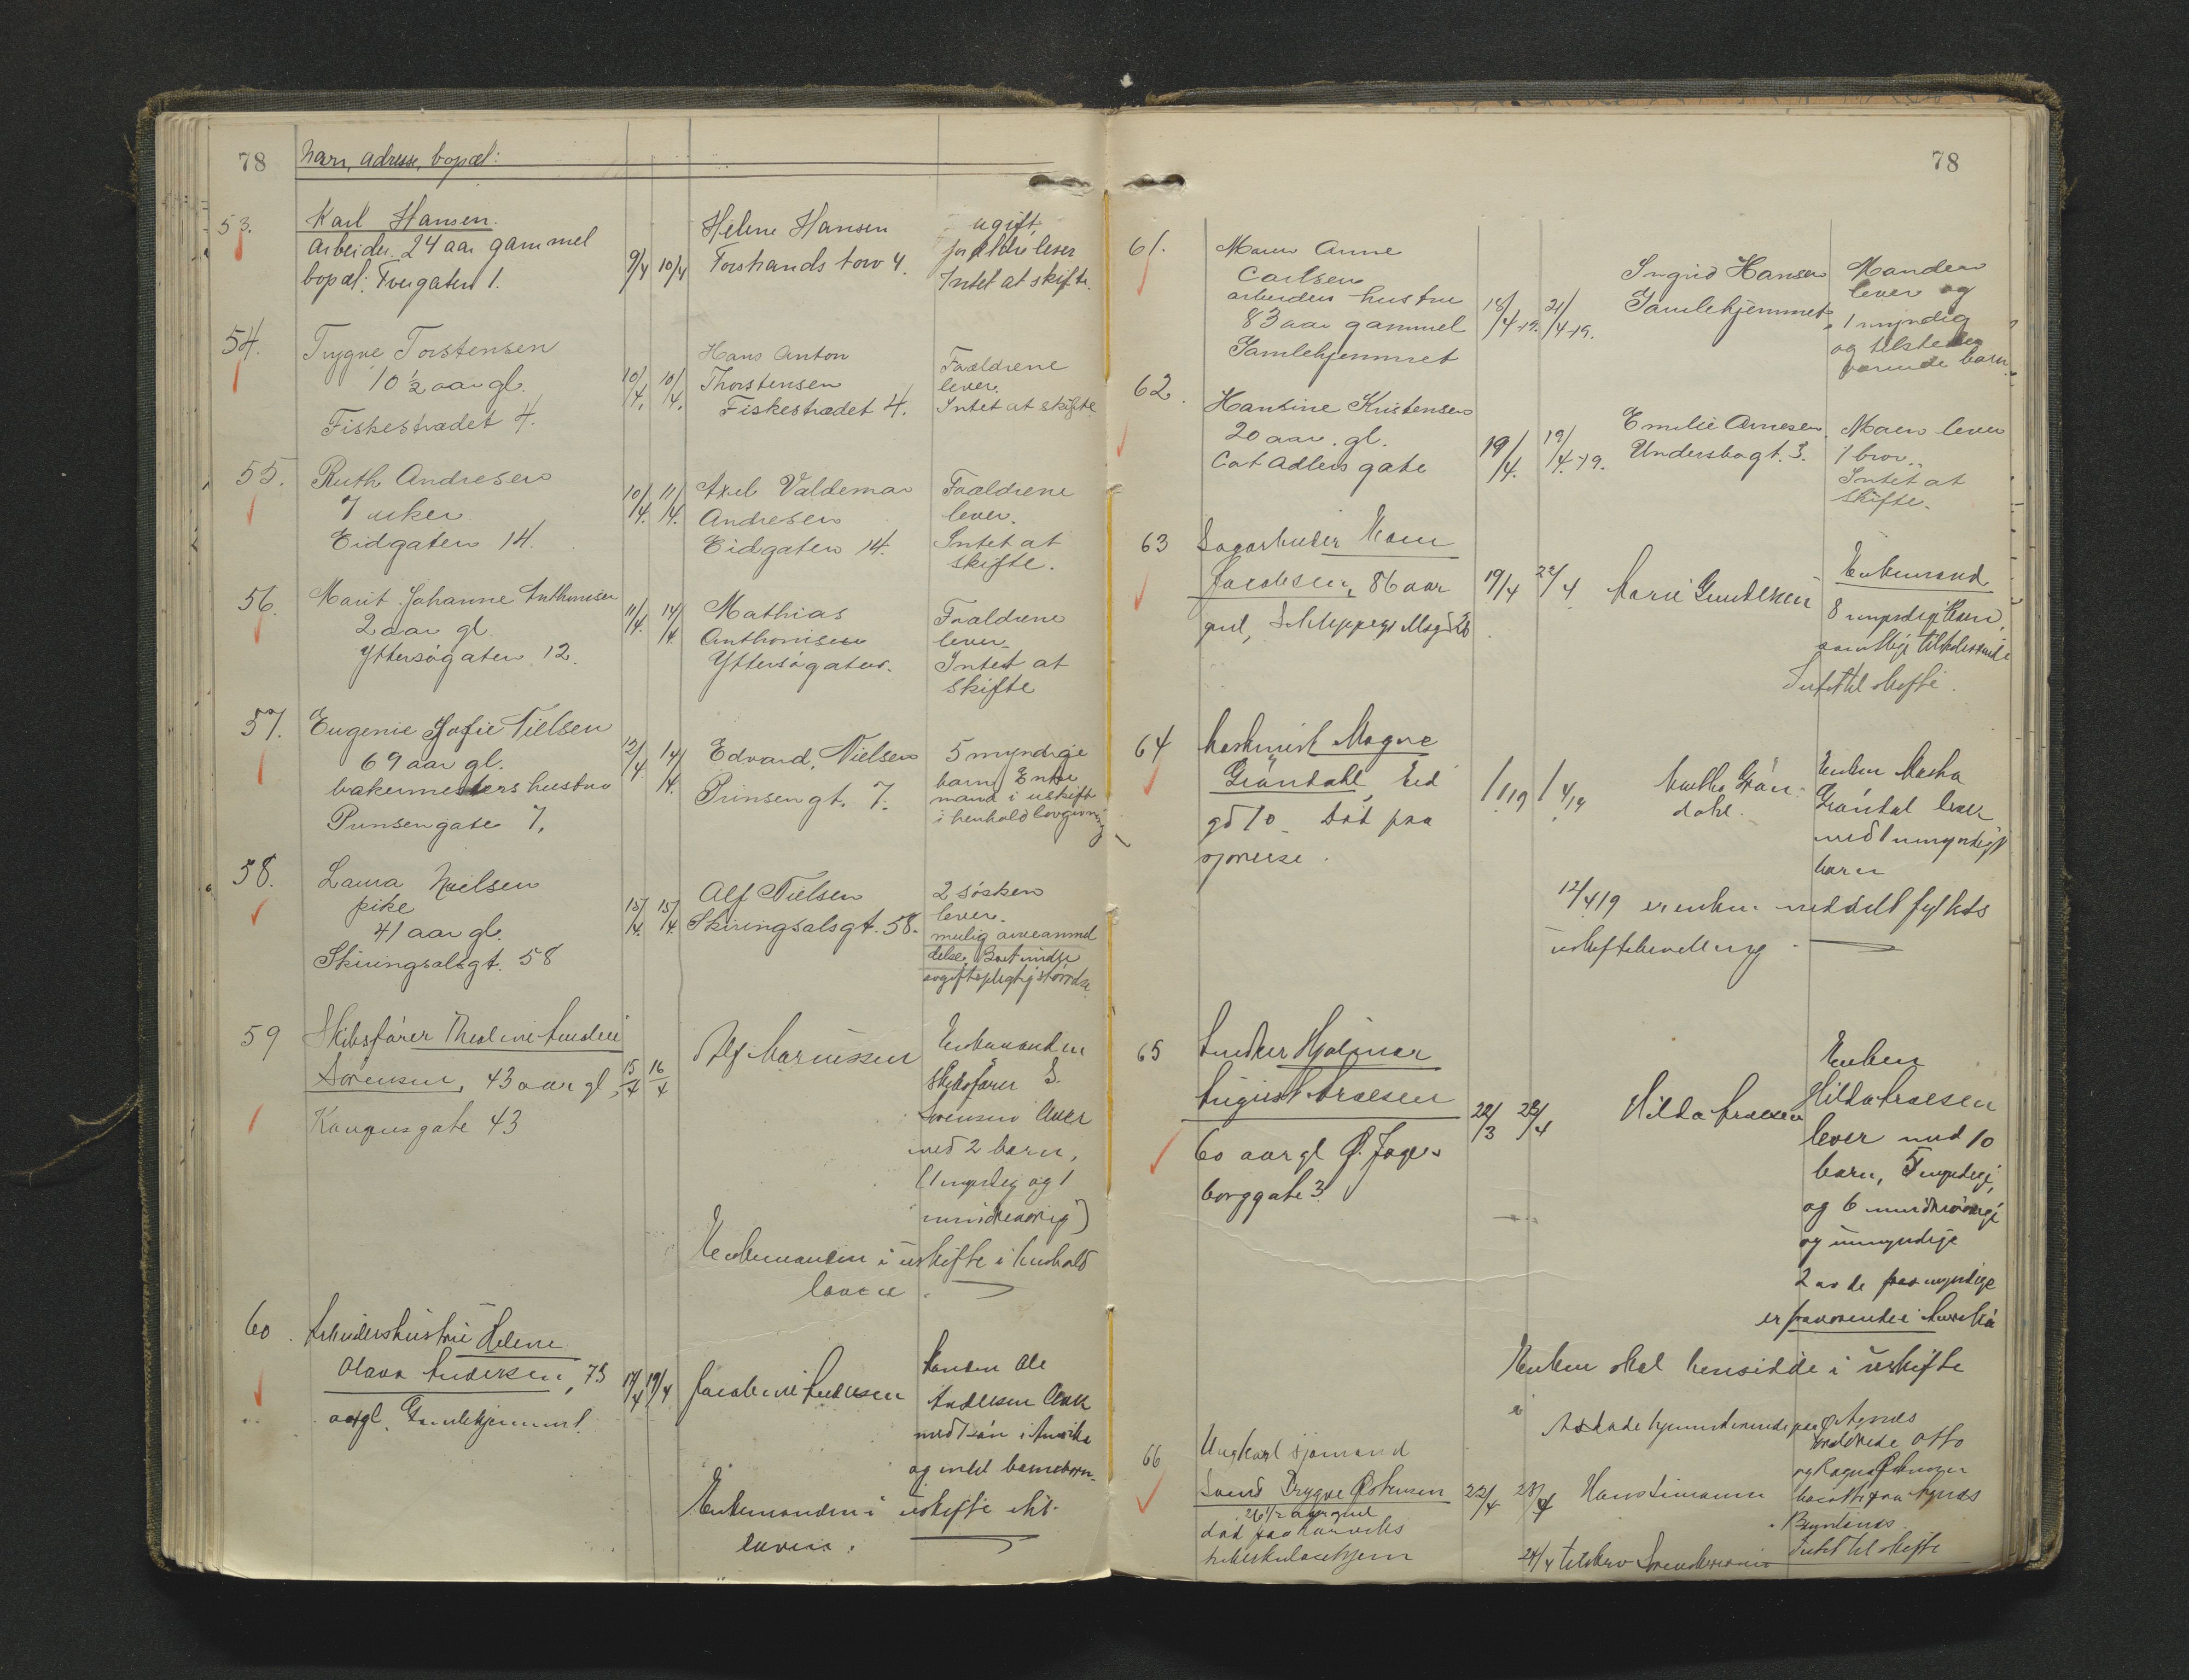 78
Navn, adresse, bopæl:
53.
Karl Hansen.
Arbeider. 24 aar gammel
bopæl: Tvergaten 1.
9/4 10/4
Helene Hansen
Torstrands torv 4.
ugift
forældre lever
Intet at skifte.
54.
Trygve Torstensen
10 ½ aar gl.
Fiskestrædet 4.
10/4. 10/4.
Hans Anton
Thorstensen
Fiskestrædet 4.
Forældrene
lever.
Intet at skifte
55.
Ruth Andresen
7 uker
Eidgaten 14.
10/4. 11/4.
Axel Valdemar
Andresen
Eidgaten 14.
Forældrene
lever.
Intet at
skifte.
56.
Marit Johanne Anthonisen
2 aar gl.
Yttersøgaten 12.
11/4. 14/4
Mathias
Anthonisen
Yttersøgaten.
Forældrene
lever.
Intet at
skifte
57.
Eugenie Sofie Nielsen
69 aar gl.
bakermesters hustru
Prinsengate 7.
12/4 14/4.
Edvard. Nielsen
Prinsengt. 7.
5 myndige
barn. Enke
mand i uskift
i henhold lovgivning
58.
Laura Nielsen
pike
41 aar gl.
Skiringsalsgt. 58
15/4. 15/4.
Alf Nielsen
Skiringsalsgt. 58.
2 søsken
lever.
mulig arveanmel
delse. Boet mindre
avgiftspligtig størrelse
59
Skibsfører
Sørensen, 43 aar gl.
Kaupangsgate 43
15/4 16/4
Alf Marcussen
Enkemanden
skibsfører S.
Sørensen lever
med 2 barn,
(1 myndig og 1
mindreaarig)
Enkemanden i uskifte i henhold
loven.
60.
Arbeiderhustru Helene
Olava Andersen, 75
aar gl. Gamlehjemmet.
17/4 19/4
Jacobine Andersen
Manden Ole
Andersen lever
med 1 søn i Amerika
og intet barnebarn.
Enkemanden i uskifte iht.
loven.
78
61.
Maren Anne
Carlsen
arbeiders hustru
83 aar gammel
Gamlehjemmet
18/4-19. 21/4-19.
Ingrid Hansen
Gamlehjemmet
Manden
lever og
1 myndig
og tilstede
værende barn.
62.
Hansine Kristensen
20 aar. gl.
Cort Adlers gate
19/4. 19/4-19.
Emilie Arnesen.
Undersbogt. 3.
Moren lever
1 bror.
Intet at
skifte.
63
Sagarbeider
Jacobsen, 86 aar
gml,
19/4 22/4
Marie Gundersen
Enkemand
8 myndige barn,
samtlige tilstedeværende
Intet til skifte.
64
Maskinist Magne
Grøndahl, Eid
gd 10 død paa
sjøreise.
1/1 19 1/4 19
Grøn-
dahl.
Enken
Grøndal lever
med 1 umyndigt
barn
12/4 19 er enken meddelt fylkets
uskiftebevilling.
65
Snedker Hjalmar
August
60 aar gl Ø. Jegers
borggate 3
22/3 23/4
Hilda
Enken
Hilda
lever med 10
barn, 5 myndige,
og 6 mindreårige
og umyndige
2 av de myndige
er fraværende i Amerika
Enken skal hensidde i uskifte
66
Ungkarl sjømand
Svend Trygve Østensen
26 1/2 aar gml
død paa Larviks
tuberkulosehjem
22/4 23/4
Hans Simonsen
Agnes
forældrede Otto
Intet til skifte
24/4